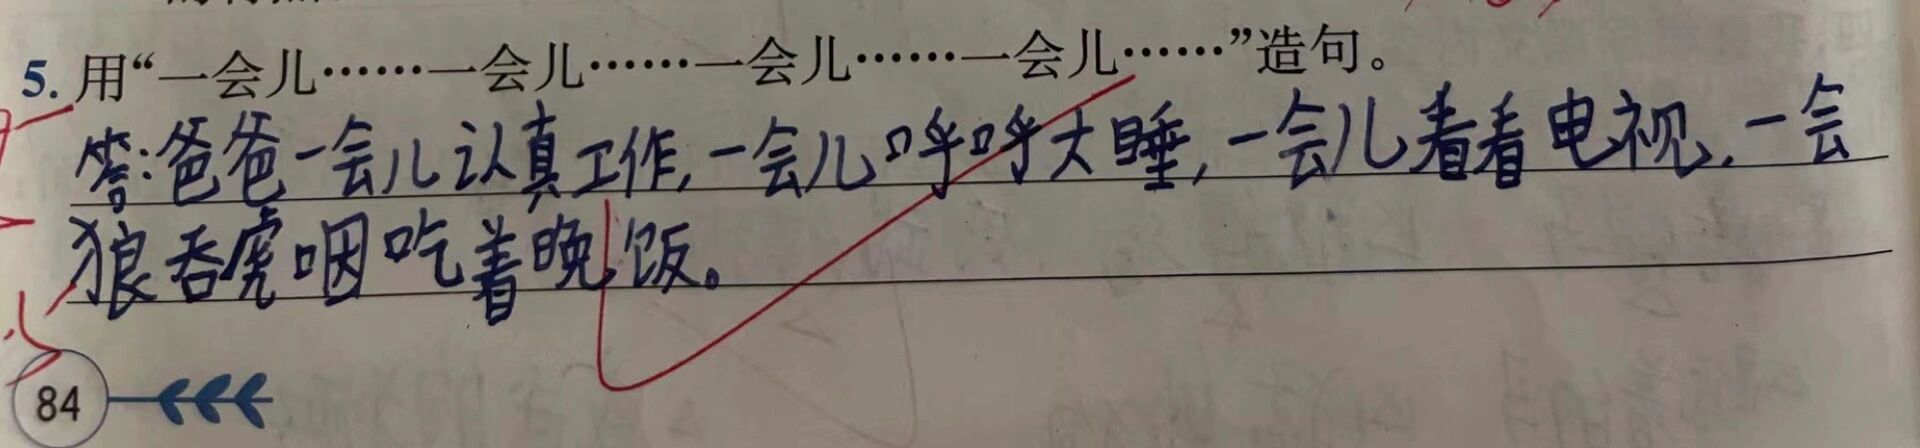 5. 用“一会儿……一会儿……一会儿……一会儿……”造句。
答:爸爸一会儿认真工作,一会儿呼呼大睡,一会儿看看电视,一会
狼吞虎咽吃着晚饭。
84